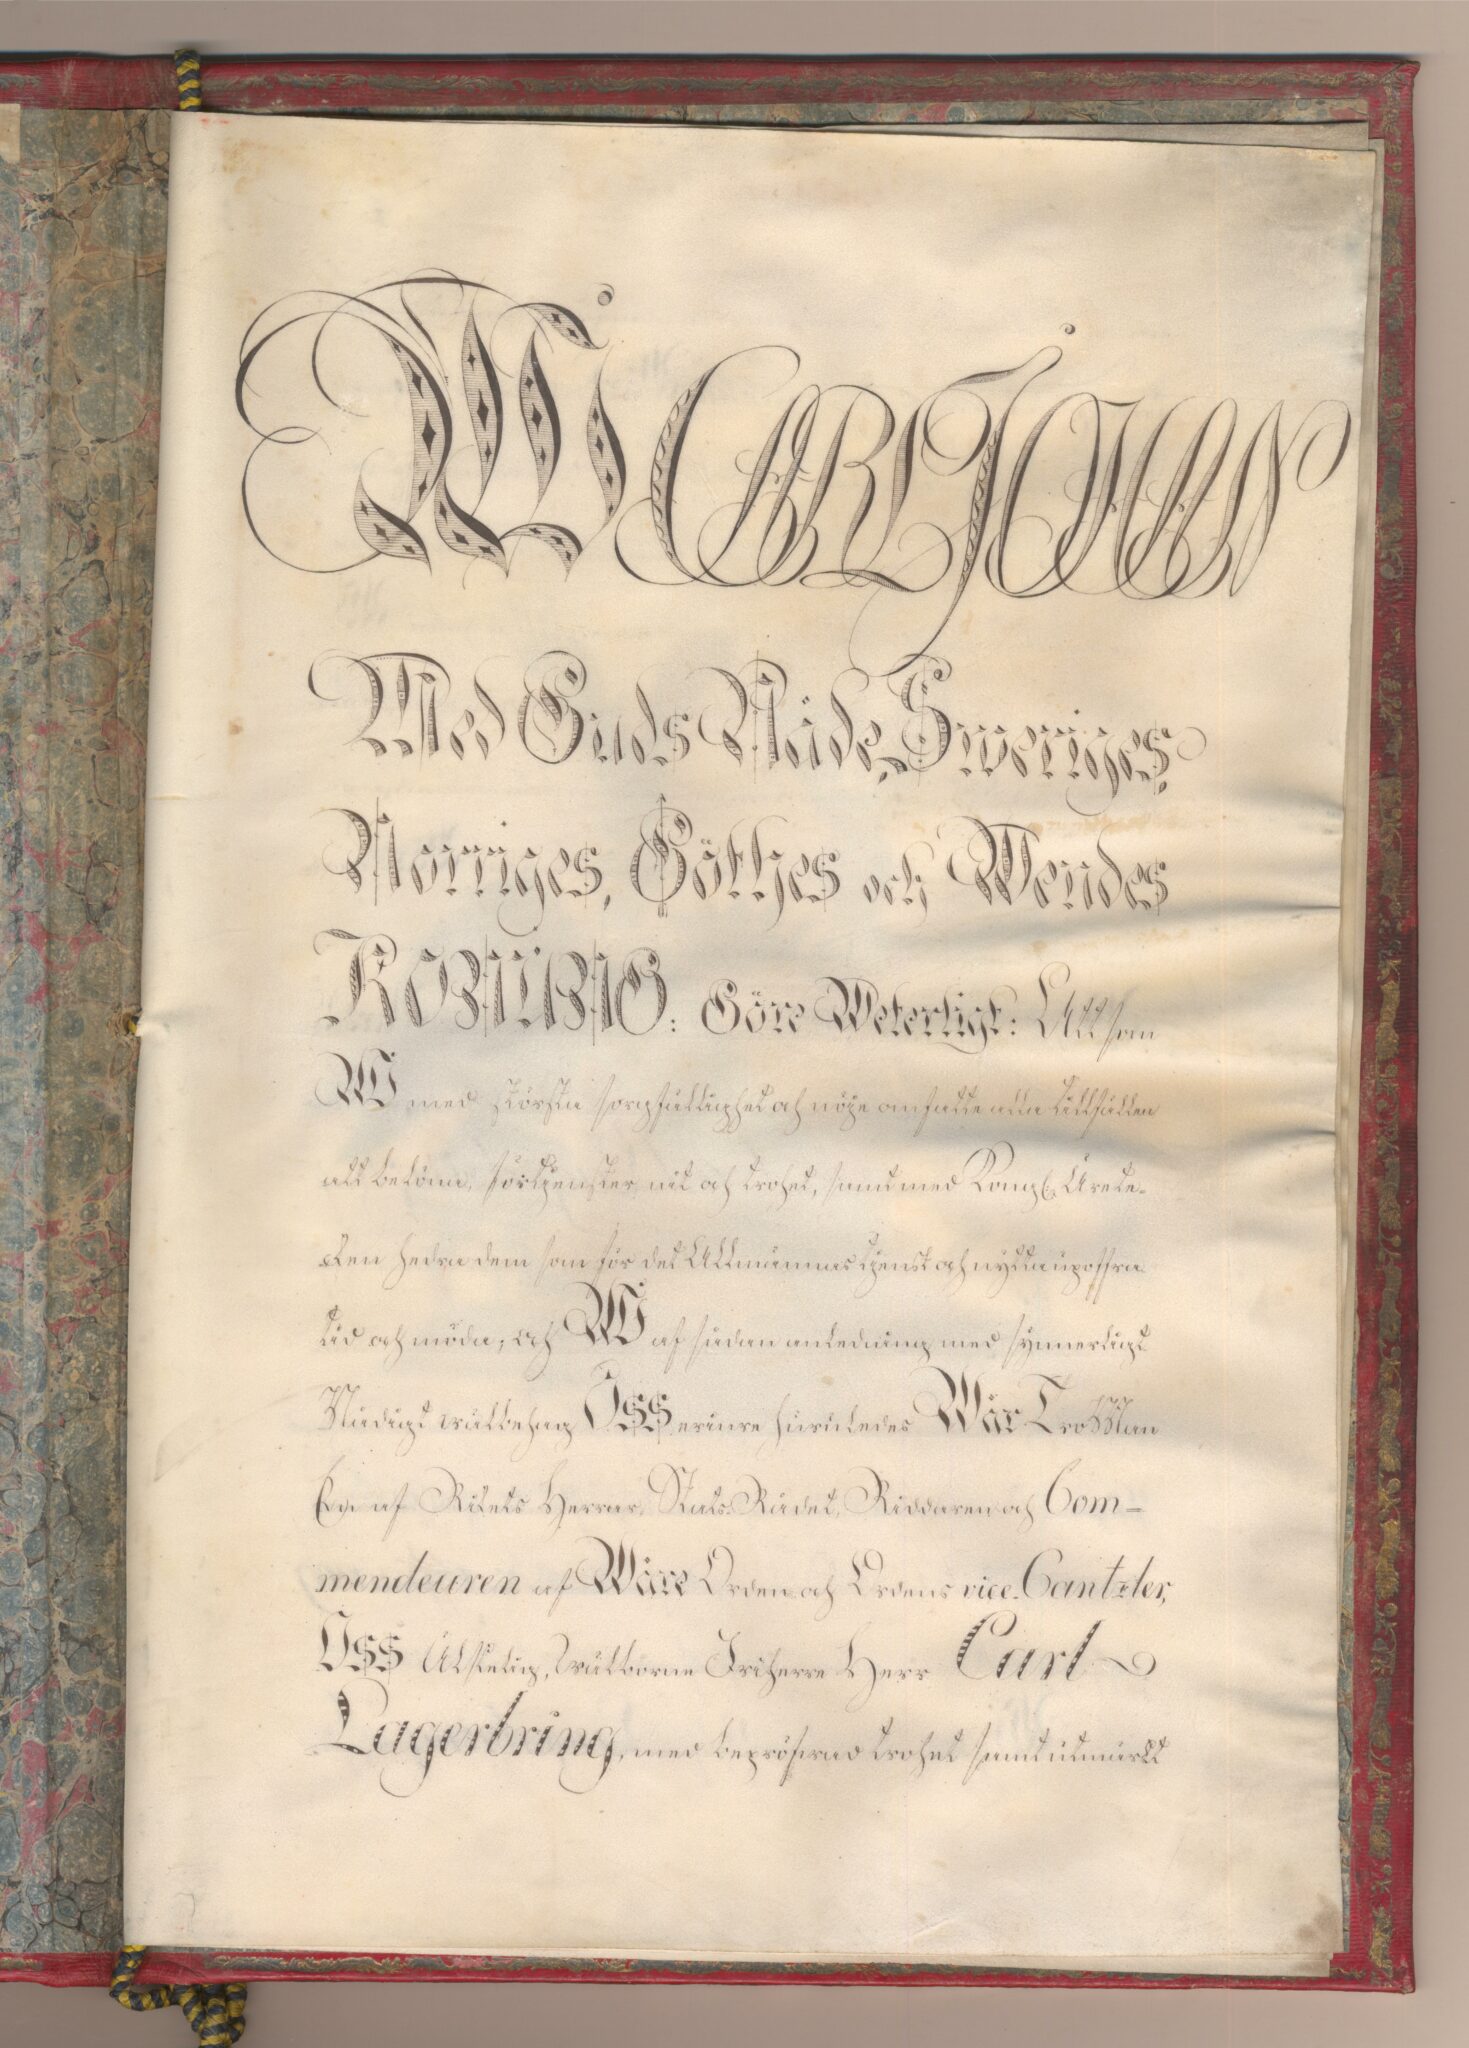 Wi CARL JOHAN
Med Guds Nåde, Sweriges,
Norriges, Göthes och Wendes
KONUNG: Göre Weterligt: Att som
Wi med största sorgfällighet och nöje omfatte alla tillfällen
att belöna förtjenster, nit och trohet, samt med Kongl. Ärete-
cken hedra dem som för det Allmännas tjenst och nytta uppoffra
tid och möda; och Wi af sådan anledning med synnerligt
Nådigt wälbehag OSS erinre huruledes Wår Tro Man
En af Rikets Herrar, Stats-Rådet, Riddaren och Com-
mendeuren af Wåre Orden och Ordens vice-Cantzler,
OSS Älskelig, Wälborne Friherre Herr Carl
Lagerbring, med bepröfwad trohet samt utmärkt